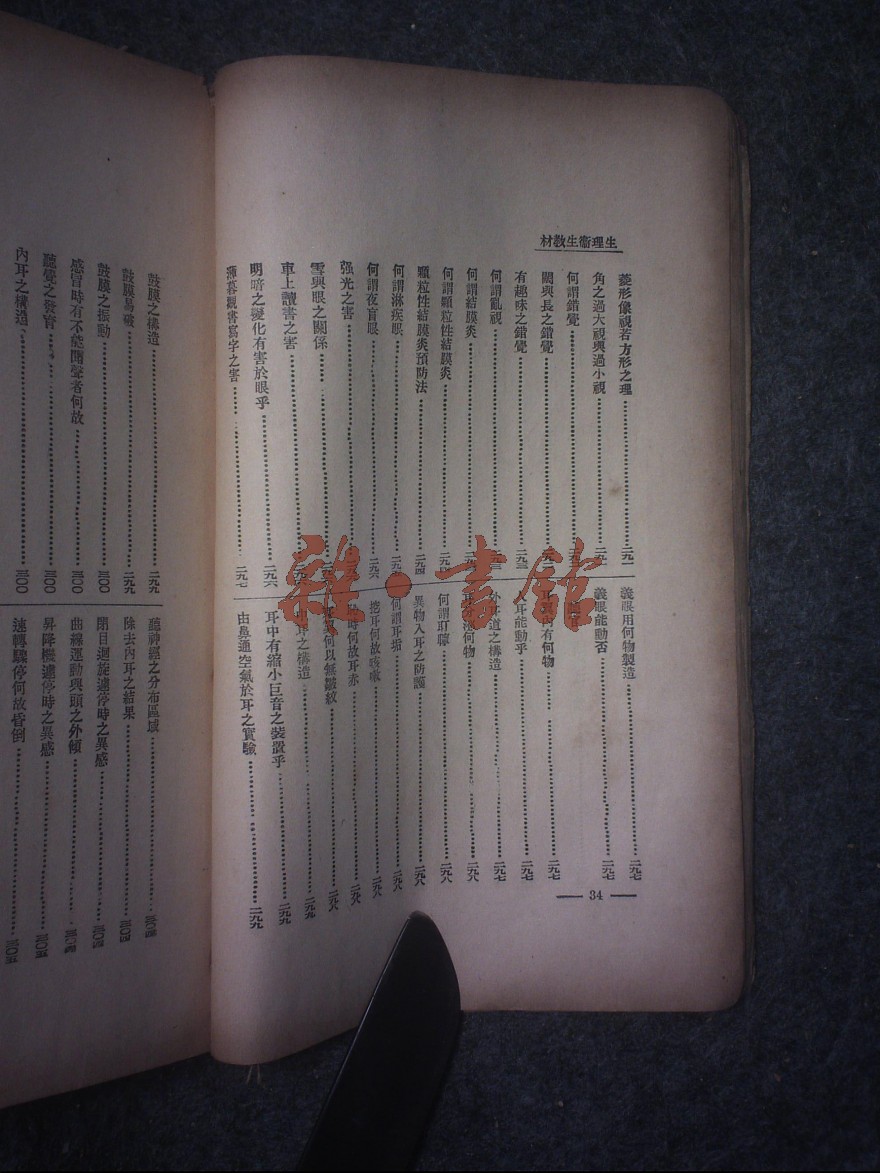 生理衞生教材
菱形像視若方形之理……二九一
角之過大視與過小視……二九一
何謂錯覺……二九
闊與長之錯覺……二九
有趣味之錯覺……二九三
何謂亂視……二九
何謂結膜炎……二九
何謂顆粒性結膜炎……二九
顆粒性結膜炎預防法……二九四
何謂淋疾眼……二九
何謂夜盲眼……二九六
强光之害
雪與眼之關係
車上讀書之害
明暗之變化有害於眼乎……二九六
薄暮觀書寫字之害……二九七
義眼用何物製造……二九七
義眼能動否……二九七
有何物……二九七
耳能動乎……二九七
外耳道之構造……二九七
何物……二九八
何謂耵聹……二九八
異物入耳之防護……二九八
何謂耳垢……二九八
挖耳何故咳嗽……二九八
時何故耳赤……二九八
何以無皺紋……二九八
耳之構造……二九九
耳中有縮小巨音之裝置乎……二九九
由鼻通空氣於耳之實驗……二九九
— 34 —
鼓膜之構造……二九九
鼓膜易破……二九九
鼓膜之振動……三〇〇
感冒時有不能聞聲者何故……三〇〇
聽覺之發育……三〇〇
內耳之構造……三〇〇
聽神經之分布區域
除去內耳之結果
閉目迴旋遽停時之異感
曲線運動與頭之外傾
昇降機遽停時之異感
速轉驟停何故昏倒
雜·書館